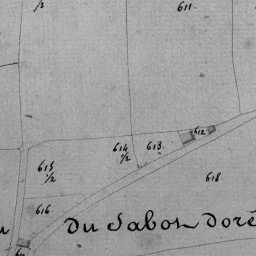 611
612
613.
614
1/2
615
1/2
618
616
du Sabot doré